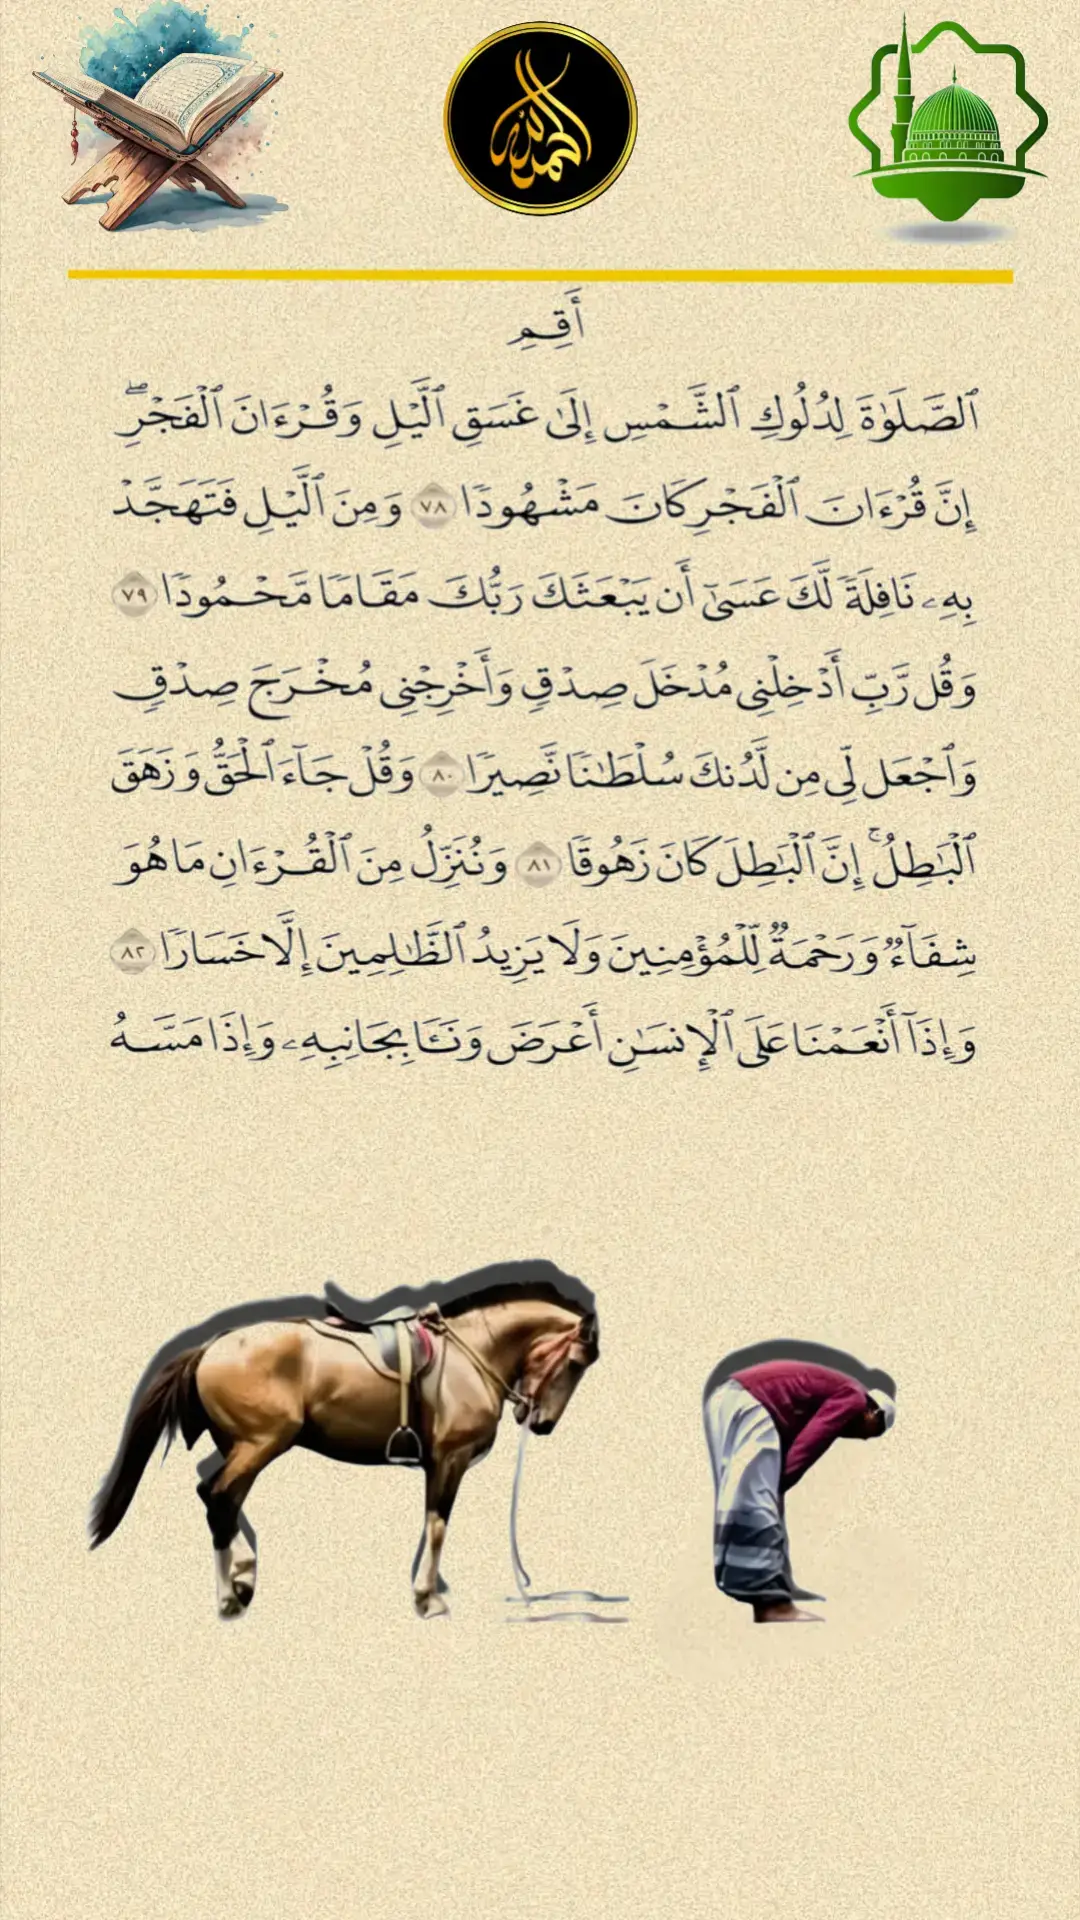 الحمد لله
أَقِمِ
ٱلصَّلَوٰةَ لِدُلُوكِ ٱلشَّمْسِ إِلَىٰ غَسَقِ ٱلَّيْلِ وَقُرْءَانَ ٱلْفَجْرِ ۖ
إِنَّ قُرْءَانَ ٱلْفَجْرِ كَانَ مَشْهُودًا ٧٨ وَمِنَ ٱلَّيْلِ فَتَهَجَّدْ
بِهِۦ نَافِلَةً لَّكَ عَسَىٰٓ أَن يَبْعَثَكَ رَبُّكَ مَقَامًا مَّحْمُودًا ٧٩
وَقُل رَّبِّ أَدْخِلْنِى مُدْخَلَ صِدْقٍ وَأَخْرِجْنِى مُخْرَجَ صِدْقٍ
وَٱجْعَل لِّى مِن لَّدُنكَ سُلْطَٰنًا نَّصِيرًا ٨٠ وَقُلْ جَآءَ ٱلْحَقُّ وَزَهَقَ
ٱلْبَٰطِلُ ۚ إِنَّ ٱلْبَٰطِلَ كَانَ زَهُوقًا ٨١ وَنُنَزِّلُ مِنَ ٱلْقُرْءَانِ مَا هُوَ
شِفَآءٌ وَرَحْمَةٌ لِّلْمُؤْمِنِينَ وَلَا يَزِيدُ ٱلظَّٰلِمِينَ إِلَّا خَسَارًا ٨٢
وَإِذَآ أَنْعَمْنَا عَلَى ٱلْإِنسَٰنِ أَعْرَضَ وَنَـَٔا بِجَانِبِهِۦ وَإِذَا مَسَّهُ